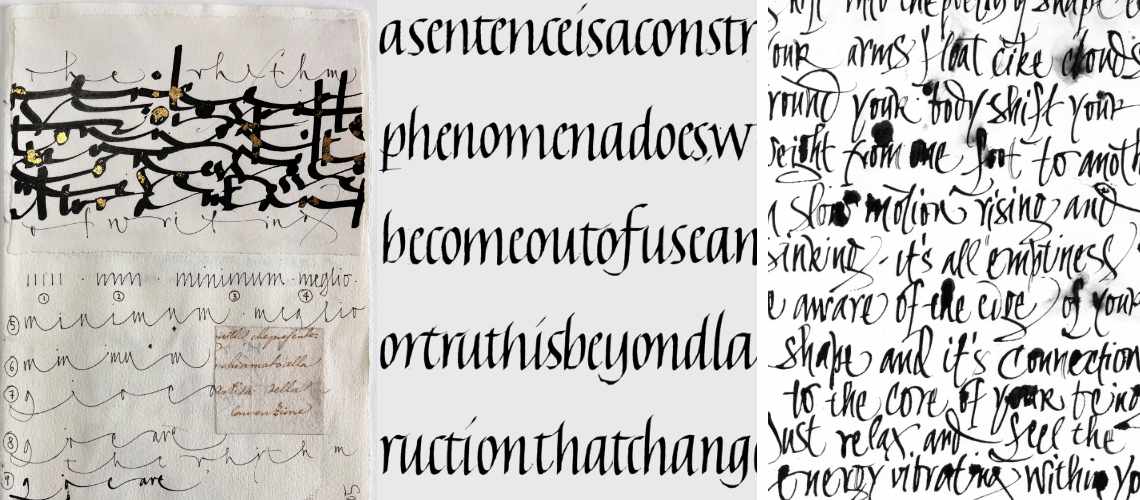 the rhythm
of writing
ııııı · mmm · minimum · meglio ·
① ② ③ ④
⑤ minimum · meglio
⑥ m in mu m
⑦ gioco
della
⑧ g are
the rhythm
are
asentenceisaconstr
phenomenadoes,w
becomeoutofusean
ortruthisbeyondla
ructionthatchange
shape
your arms float like clouds
round your body shift your
weight from one foot to anoth
a slow motion rising and
sinking - it's all emptiness
e aware of the edge of your
shape and it's connection
to the core of your being
Just relax and feel the
energy vibrating within yo